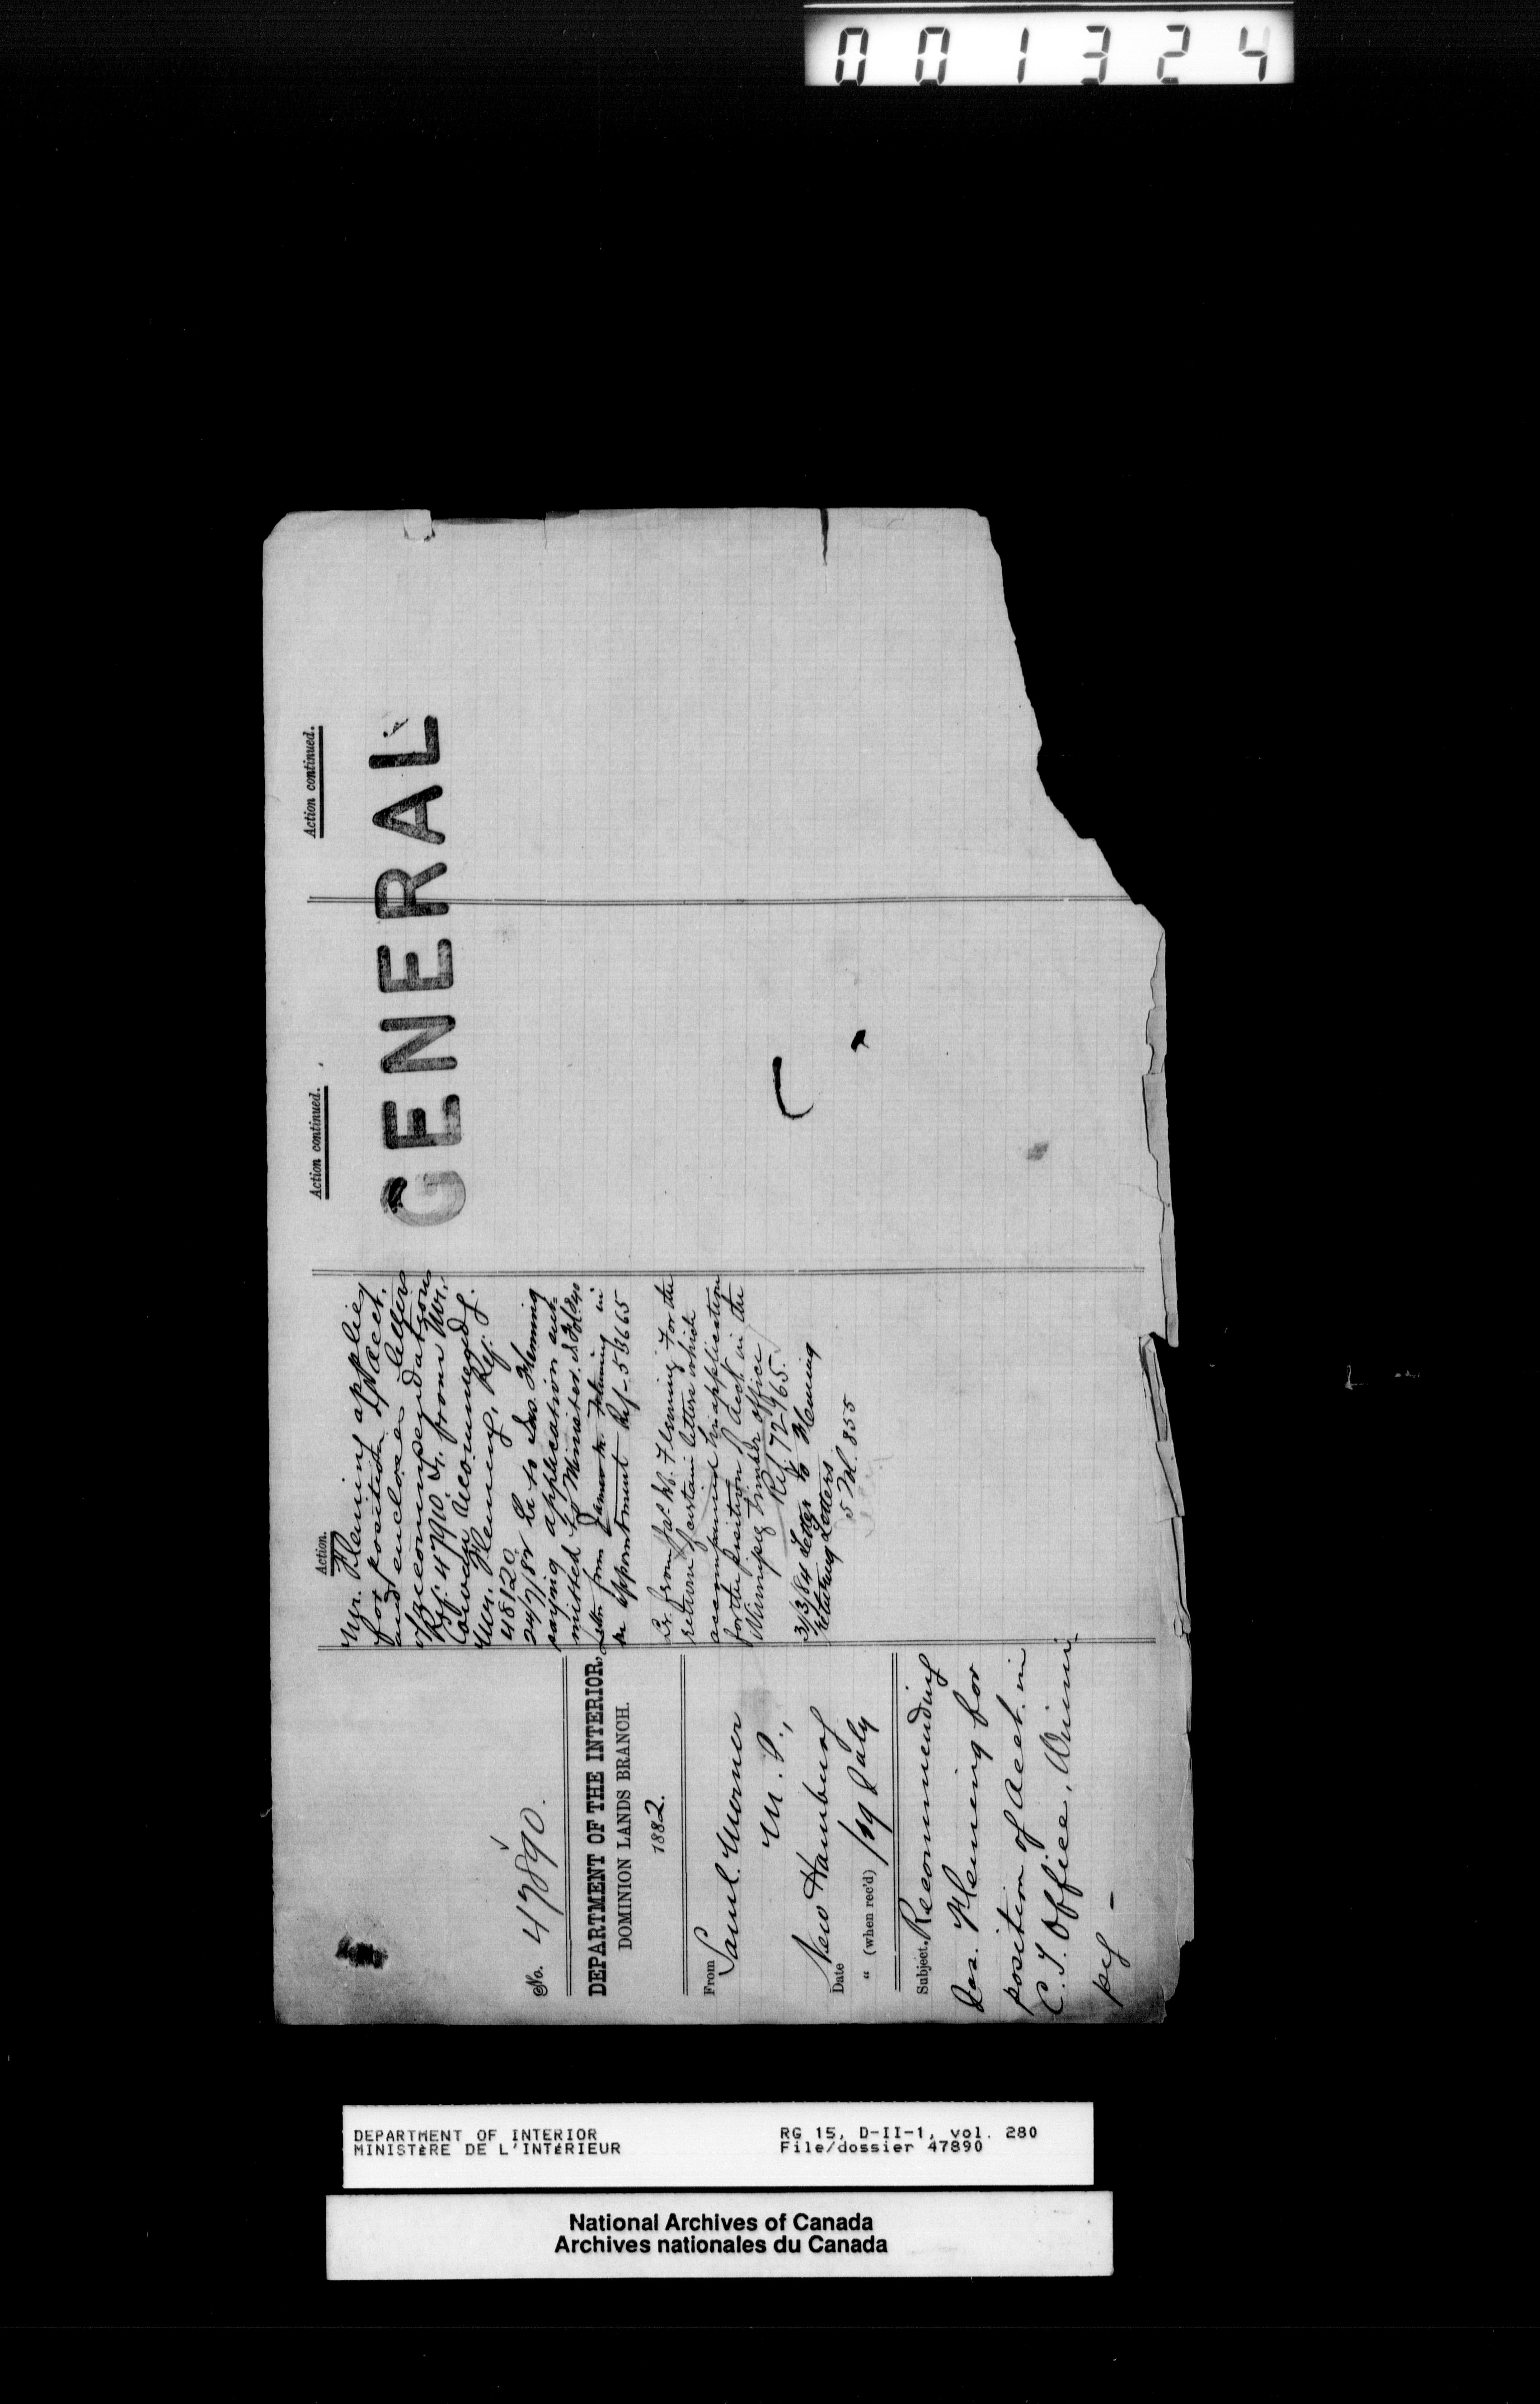 001324
No. 47890.
DEPARTMENT OF THE INTERIOR,
DOMINION LANDS BRANCH.
1882.
From Saml. Merner
M. P.,
New Hamburg
Date
" (when rec'd) 19 July
Subject. Recommending
Jas. Fleming for
position of Acct. in
C. T. Office, Winni-
peg –
Action.
Mr. Fleming applies
for position of Acct.
and encloses letters
of recommendations
Ref: 47910. Lr. from Mr.
Cowan recommendg.
Mr. Fleming, Ref:
48120.
24/7/82 Lr to Jas. Fleming
saying application sub-
mitted to Minister.
Letter from James M. Fleming in
re appointment Ref - 53665
Lr. from Jas. W. Fleming for the
return of certain letters which
accompanied his application
for the position of Acct in the
Winnipeg Timber office
Ref 72965.
3/3/84 Letter to Fleming
returning Letters
5 Fol. 855
Action continued.
Action continued.
GENERAL
DEPARTMENT OF INTERIOR
MINISTÈRE DE L'INTÉRIEUR
RG 15, D-II-1, vol. 280
File/dossier 47890
National Archives of Canada
Archives nationales du Canada